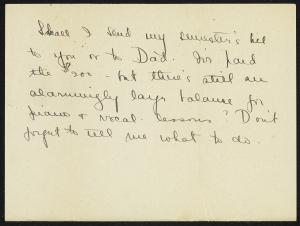 Shall I send my semester's bill
to you or to Dad. I've paid
the $200 - but there's still an
alarmingly large balance for
piano & vocal lessons? Don't
forget to tell me what to do.